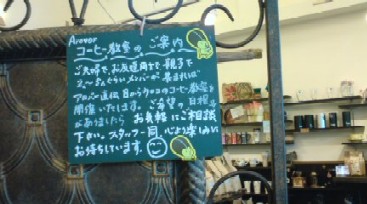 Arenor
コーヒー教室の ご案内
ご夫婦で、お友達同士で 親子で
メンバーが 集まれば
アロマン直伝 目からウロコのコーヒー教室
開催いたします。ご希望の日程等
がありましたら お気軽にご相談
下さい。スタッフ一同 心より楽しみに
お待ちしています。